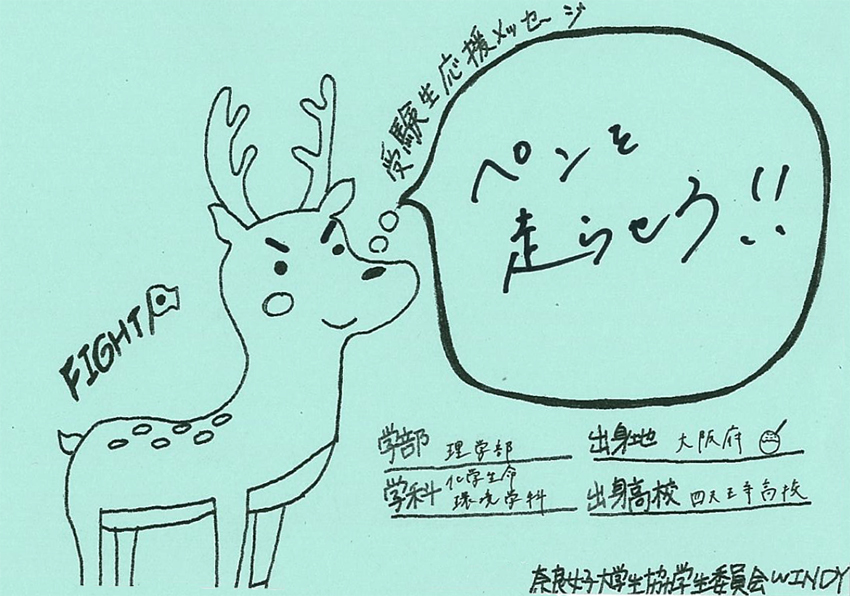 受験生応援メッセージ
ペンを
走らせろ!!
FIGHT
学部 理学部
学科 化学生命
環境学科
出身地 大阪府
出身高校 四天王寺高校
奈良女子大学生協学生委員会WINDY